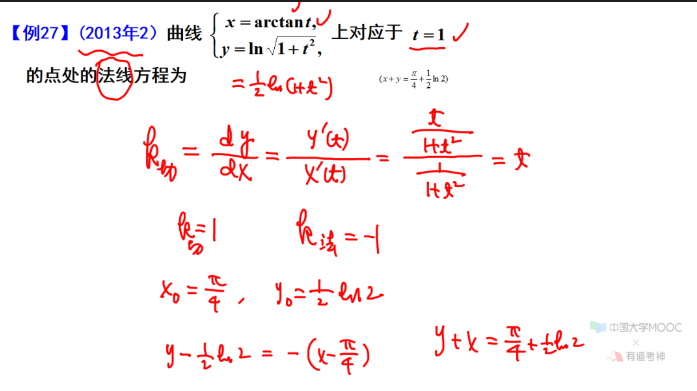 【例27】(2013年2) 曲线 { x = arctan t, y = ln √(1+t²), 上对应于 t = 1
的点处的法线方程为 (x + y = π/4 + 1/2 ln 2)
= 1/2 ln(1+t²)
k切 = dy/dx = y'(t)/x'(t) = (t/(1+t²))/(1/(1+t²)) = t
k切 = 1 k法 = -1
x₀ = π/4 , y₀ = 1/2 ln 2
y - 1/2 ln 2 = -(x - π/4) y + x = π/4 + 1/2 ln 2
中国大学MOOC
×
有道考神